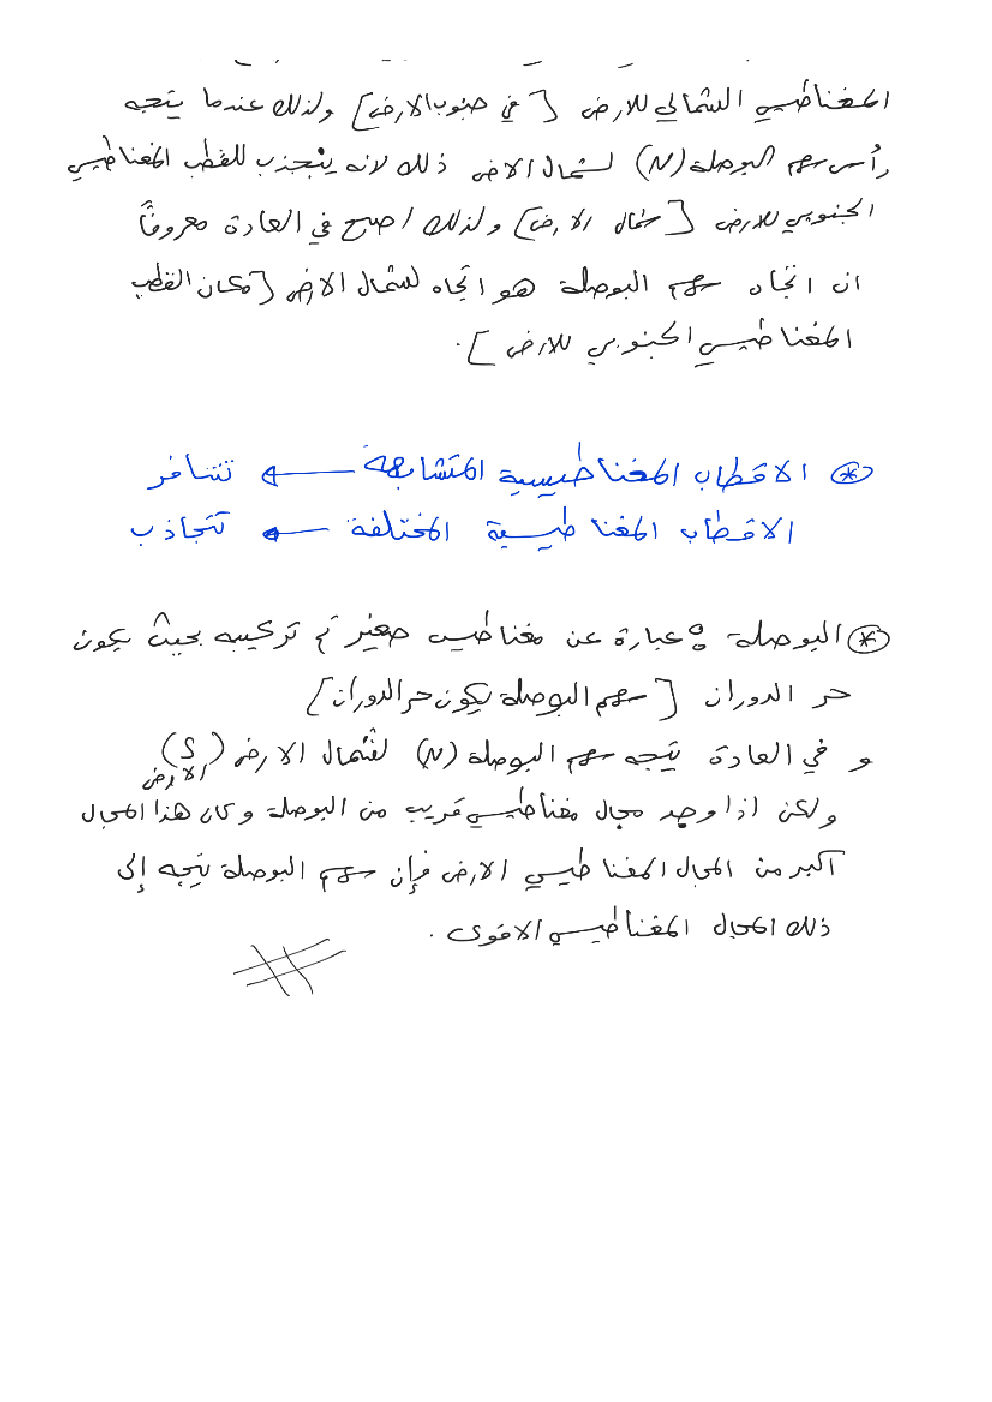 المغناطيسي الشمالي للارض [في جنوب الارض] ولذلك عندما يتجه
رأس سهم البوصلة (N) لشمال الارض ذلك لانه ينجذب للقطب المغناطيسي
الجنوبي للارض [شمال الارض] ولذلك اصبح في العادة معروفاً
ان اتجاه سهم البوصلة هو اتجاه لشمال الارض [مكان القطب
المغناطيسي الجنوبي للارض].
* الاقطاب المغناطيسية المتشابهة ← تتنافر
الاقطاب المغناطيسية المختلفة ← تتجاذب
* البوصلة : عبارة عن مغناطيس صغير تم تركيبه بحيث يكون
حر الدوران [سهم البوصلة يكون حر الدوران]
و في العادة يتجه سهم البوصلة (N) لشمال الارض (S)
الارض
ولكن اذا وجد مجال مغناطيسي قريب من البوصلة وكان هذا المجال
اكبر من المجال المغناطيسي الارض فإن سهم البوصلة يتجه إلى
ذلك المجال المغناطيسي الاقوى .